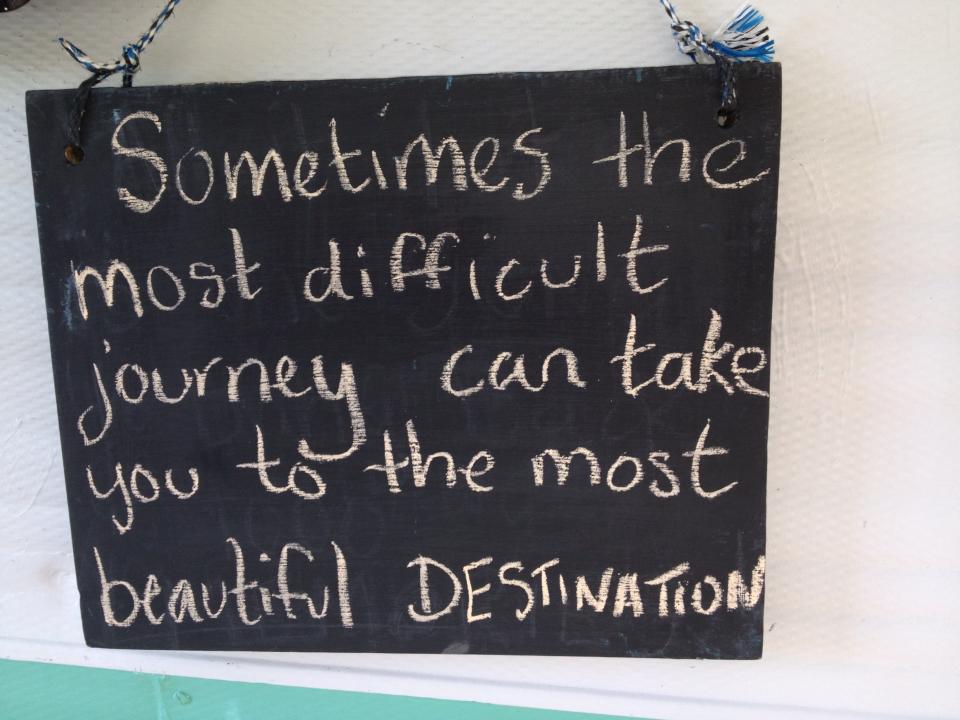 Sometimes the
most difficult
journey can take
you to the most
beautiful DESTINATION